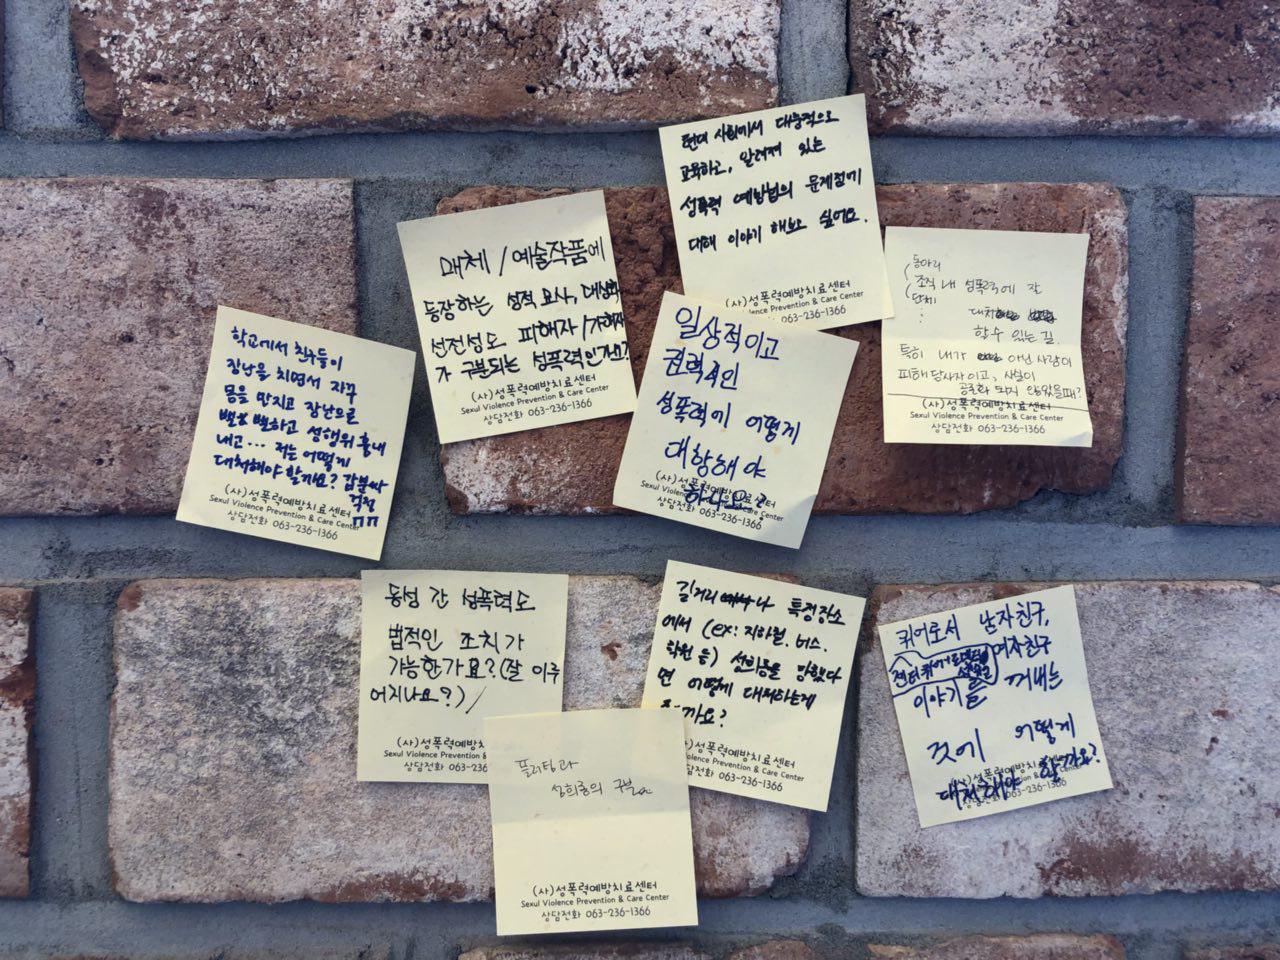 현대 사회에서 대중적으로
교육하고, 알려져 있는
성폭력 예방법의 문제점에
대해 이야기 해보고 싶어요.
(사)성폭력예방치료센터
lence Prevention & Care Center
063-236-1366
매체/예술작품에
등장하는 성적 묘사, 대상화
선전성도 피해자/가해자
가 구분되는 성폭력인가요?
(사)성폭력예방치료센터
Sexul Violence Prevention & Care Center
상담전화 063-236-1366
동아리
조직 내 성폭력에 잘
단체
대처
할 수 있는 길.
특히 내가 아닌 사람이
피해 당사자이고, 사실이
공론화 되지 않았을때?
(사)성폭력예방치료센터
Sexul Violence Prevention & Care Center
상담전화 063-236-1366
학교에서 친구들이
장난을 치면서 자꾸
몸을 만지고 장난으로
하고 성행위 흉내
내고... 저는 어떻게
대처해야 할까요? 갑분싸
걱정
ㅠㅠ
(사)성폭력예방치료센터
Sexul Violence Prevention & Care Center
상담전화 063-236-1366
일상적이고
권력적인
성폭력에 어떻게
대항해야
하나요?
(사)성폭력예방치료센터
Sexul Violence Prevention & Care Center
상담전화 063-236-1366
동성 간 성폭력도
법적인 조치가
가능한가요? (잘 이루
어지나요?)
(사)성폭력예방치
Sexul Violence Prevention &
상담전화 063-236
길거리나 특정장소
에서 (ex: 지하철, 버스,
학원 등) 성희롱을 당했다
면 어떻게 대처하는게
할까요?
성폭력예방치료센터
Prevention & Care Center
063-236-1366
퀴어로서 남자친구,
여자친구
젠더퀴어
이야기를 꺼내는
것에 어떻게
대처해야 할까요?
(사)성폭력예방치료센터
Prevention & Care Center
상담전화 063-236-1366
플러팅과
성희롱의 구분
(사)성폭력예방치료센터
Sexul Violence Prevention & Care Center
상담전화 063-236-1366